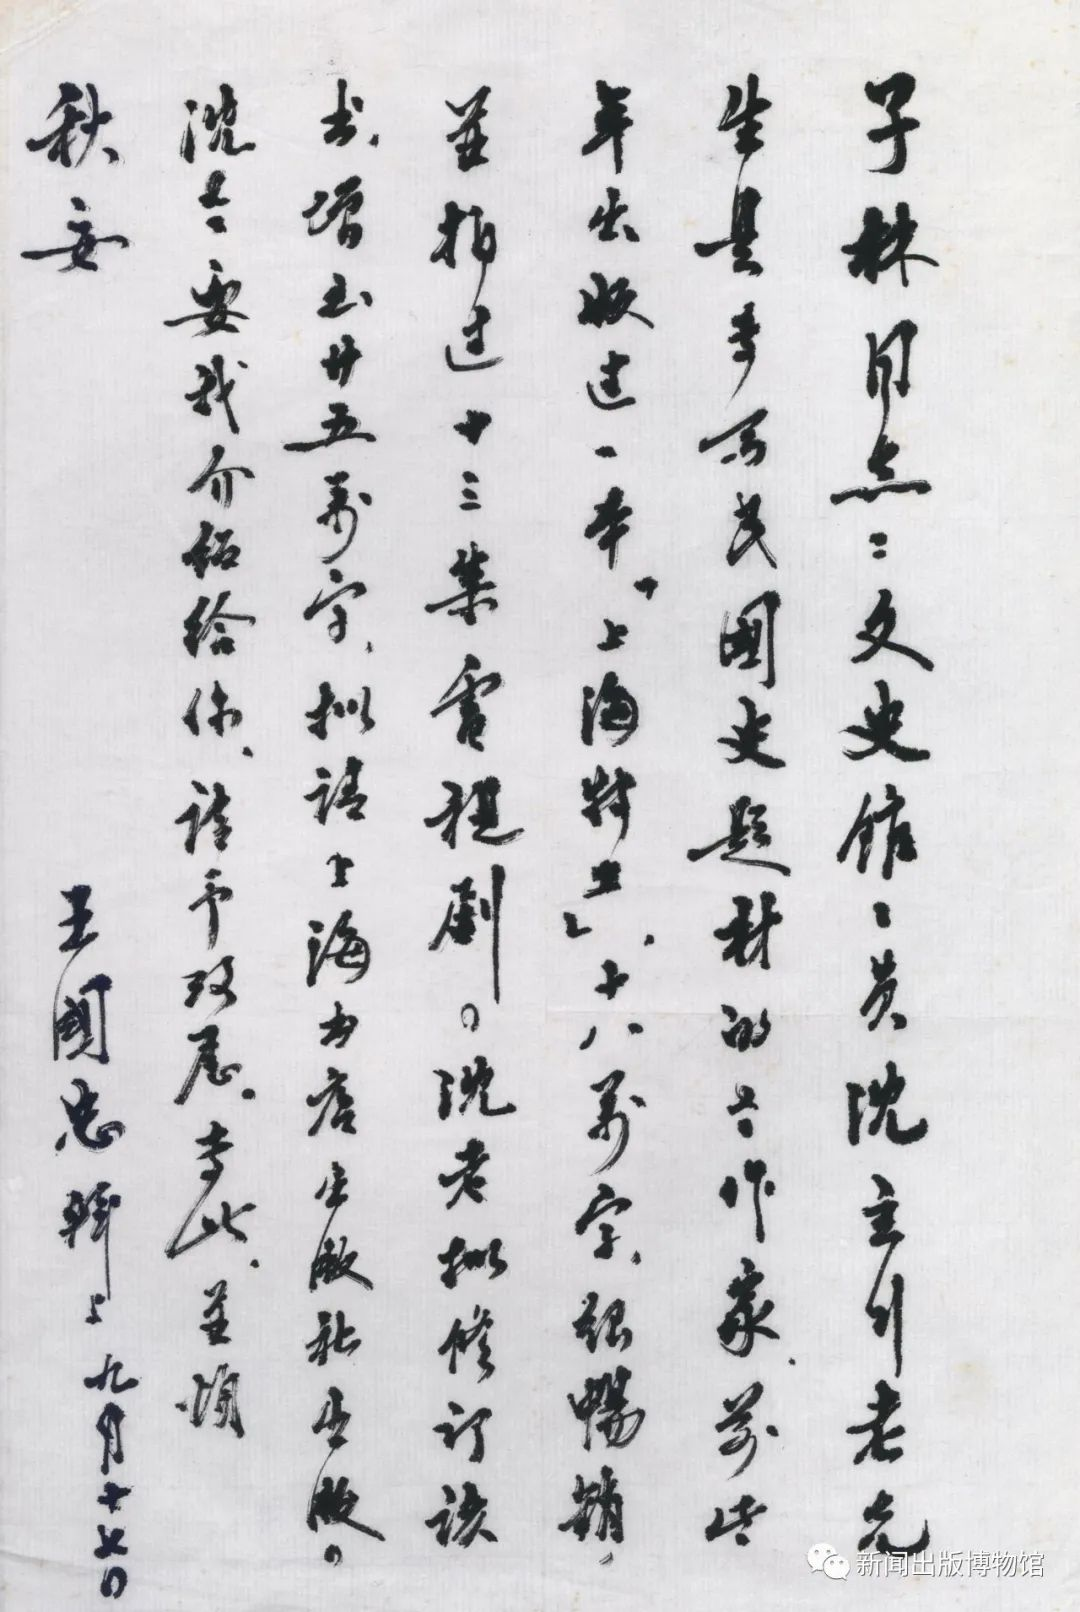 子林同志：文史館〻员沈立行老先
生是专写民國史题材的老作家、前些
年出版过一本「上海特工」、十八萬字、很暢销，
並拍过十三集電视剧。沈老拟修订该
书、增至廿五萬字、拟请上海书店出版社出版。
沈老要我介绍给你、请予攷虑。专此、並颂
秋安
王國忠 上 九月十七日
新闻出版博物馆